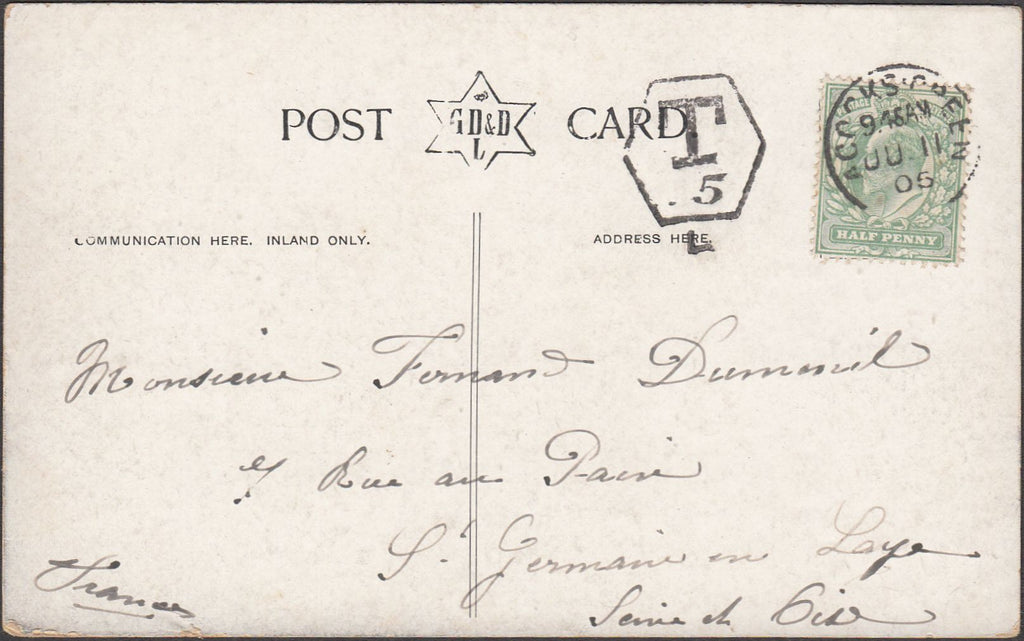 POST G D & D L CARD
T
5
L
POSTAGE
ACOCKS·GREEN
9.45AM
JU 11
05
HALF PENNY
COMMUNICATION HERE. INLAND ONLY.
ADDRESS HERE.
Monsieur Fernand Dumenil
7 Rue au Pain
St Germain en Laye
Seine et Oise
France